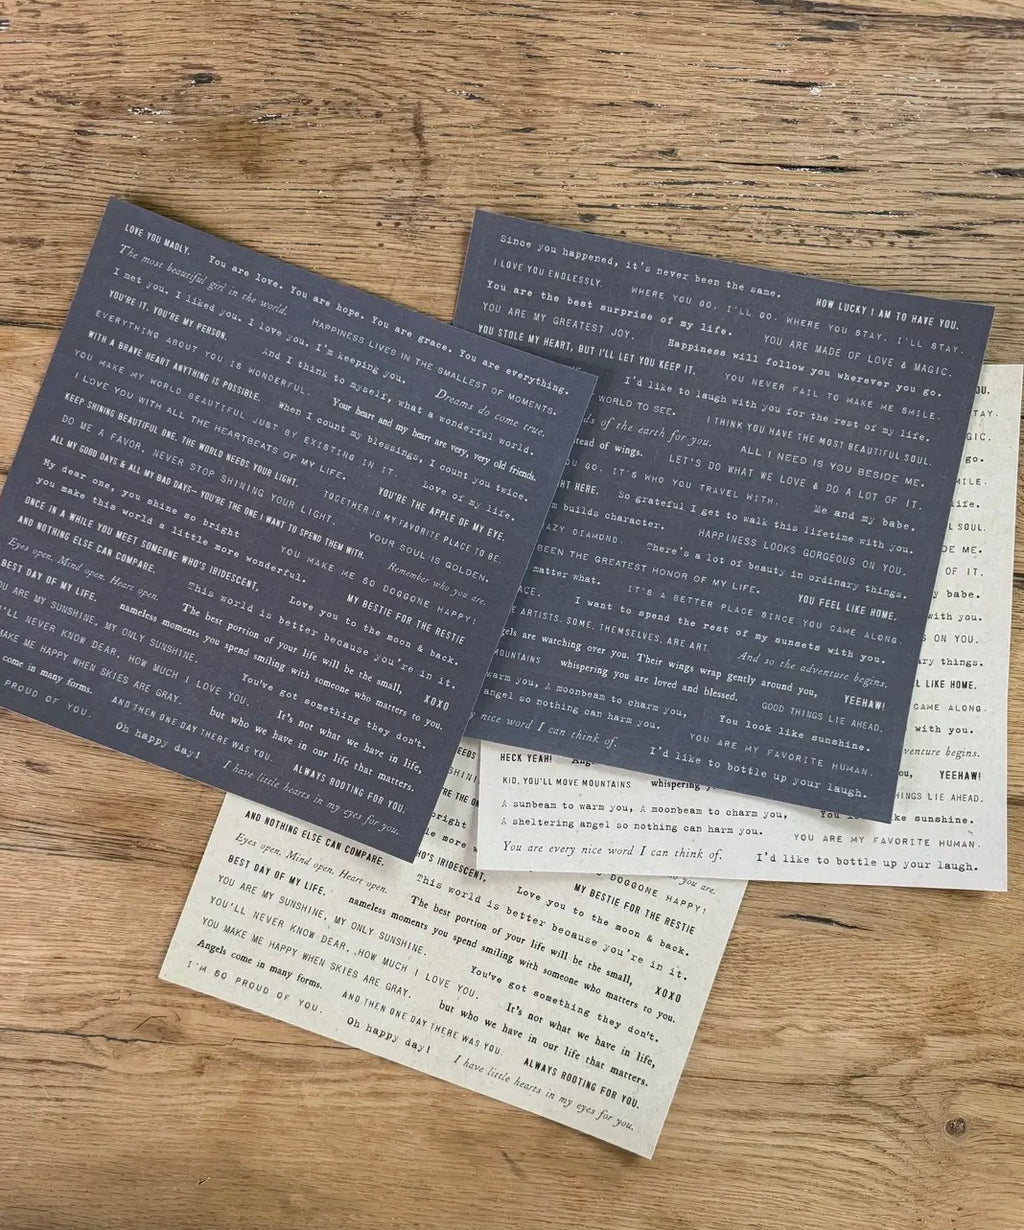 LOVE YOU MADLY. You are love. You are hope. You are grace. You are everything.
The most beautiful girl in the world. HAPPINESS LIVES IN THE SMALLEST OF MOMENTS.
I met you. I liked you. I love you. I'm keeping you. Dreams do come true.
YOU'RE IT. YOU'RE MY PERSON. And I think to myself, what a wonderful world.
EVERYTHING ABOUT YOU IS WONDERFUL. Your heart and my heart are very, very old friends.
WITH A BRAVE HEART ANYTHING IS POSSIBLE. When I count my blessings, I count you twice.
YOU MAKE MY WORLD BEAUTIFUL JUST BY EXISTING IN IT. Love of my life.
I LOVE YOU WITH ALL THE HEARTBEATS OF MY LIFE. YOU'RE THE APPLE OF MY EYE.
KEEP SHINING BEAUTIFUL ONE. THE WORLD NEEDS YOUR LIGHT. TOGETHER IS MY FAVORITE PLACE TO BE.
DO ME A FAVOR, NEVER STOP SHINING YOUR LIGHT. YOUR SOUL IS GOLDEN.
ALL MY GOOD DAYS & ALL MY BAD DAYS—YOU'RE THE ONE I WANT TO SPEND THEM WITH. Remember who you are.
My dear one, you shine so bright YOU MAKE ME SO DOGGONE HAPPY!
you make this world a little more wonderful. MY BESTIE FOR THE RESTIE
ONCE IN A WHILE YOU MEET SOMEONE WHO'S IRIDESCENT, Love you to the moon & back.
AND NOTHING ELSE CAN COMPARE. This world is better because you're in it.
Eyes open. Mind open. Heart open. The best portion of your life will be the small, XOXO
BEST DAY OF MY LIFE. nameless moments you spend smiling with someone who matters to you.
YOU ARE MY SUNSHINE, MY ONLY SUNSHINE. You've got something they don't.
YOU'LL NEVER KNOW DEAR, HOW MUCH I LOVE YOU. It's not what we have in life,
MAKE ME HAPPY WHEN SKIES ARE GRAY. but who we have in our life that matters.
come in many forms. AND THEN ONE DAY THERE WAS YOU. ALWAYS ROOTING FOR YOU.
PROUD OF YOU. Oh happy day! I have little hearts in my eyes for you.
Since you happened, it's never been the same. HOW LUCKY I AM TO HAVE YOU.
I LOVE YOU ENDLESSLY. WHERE YOU GO, I'LL GO. WHERE YOU STAY, I'LL STAY.
You are the best surprise of my life. YOU ARE MADE OF LOVE & MAGIC.
YOU ARE MY GREATEST JOY. Happiness will follow you wherever you go.
YOU STOLE MY HEART, BUT I'LL LET YOU KEEP IT. YOU NEVER FAIL TO MAKE ME SMILE.
I'd like to laugh with you for the rest of my life.
WORLD TO SEE. I THINK YOU HAVE THE MOST BEAUTIFUL SOUL.
of the earth for you. ALL I NEED IS YOU BESIDE ME.
stead of wings. LET'S DO WHAT WE LOVE & DO A LOT OF IT.
YOU GO. IT'S WHO YOU TRAVEL WITH. Me and my babe.
HT HERE. So grateful I get to walk this lifetime with you.
builds character. HAPPINESS LOOKS GORGEOUS ON YOU.
AZY DIAMOND. There's a lot of beauty in ordinary things.
BEEN THE GREATEST HONOR OF MY LIFE. YOU FEEL LIKE HOME.
matter what. IT'S A BETTER PLACE SINCE YOU CAME ALONG.
ACE. I want to spend the rest of my sunsets with you.
ARTISTS. SOME, THEMSELVES, ARE ART. And so the adventure begins.
gels are watching over you. Their wings wrap gently around you, YEEHAW!
MOUNTAINS whispering you are loved and blessed. GOOD THINGS LIE AHEAD.
warm you, A moonbeam to charm you, You look like sunshine.
angel so nothing can harm you. YOU ARE MY FAVORITE HUMAN.
nice word I can think of. I'd like to bottle up your laugh.
OU.
TAY.
GIC.
go.
ILE.
life.
SOUL.
DE ME.
OF IT.
babe.
with you.
ON YOU.
ary things.
L LIKE HOME.
CAME ALONG.
with you.
venture begins.
HECK YEAH! Ang ou, YEEHAW!
KID, YOU'LL MOVE MOUNTAINS whispering HINGS LIE AHEAD.
A sunbeam to warm you, A moonbeam to charm you, You ke sunshine.
A sheltering angel so nothing can harm you. YOU ARE MY FAVORITE HUMAN.
You are every nice word I can think of. I'd like to bottle up your laugh.
EEDS
SHINI
RE THE ON
bright
le more
DOGGONE HAPPY!
you are.
HO'S IRIDESCENT, MY BESTIE FOR THE RESTIE
AND NOTHING ELSE CAN COMPARE. Love you to the moon & back.
Eyes open. Mind open. Heart open. This world is better because you're in it.
BEST DAY OF MY LIFE. The best portion of your life will be the small, XOXO
nameless moments you spend smiling with someone who matters to you.
YOU ARE MY SUNSHINE, MY ONLY SUNSHINE. You've got something they don't.
YOU'LL NEVER KNOW DEAR, HOW MUCH I LOVE YOU. It's not what we have in life,
YOU MAKE ME HAPPY WHEN SKIES ARE GRAY. but who we have in our life that matters.
Angels come in many forms. AND THEN ONE DAY THERE WAS YOU. ALWAYS ROOTING FOR YOU.
I'M SO PROUD OF YOU. Oh happy day! I have little hearts in my eyes for you.